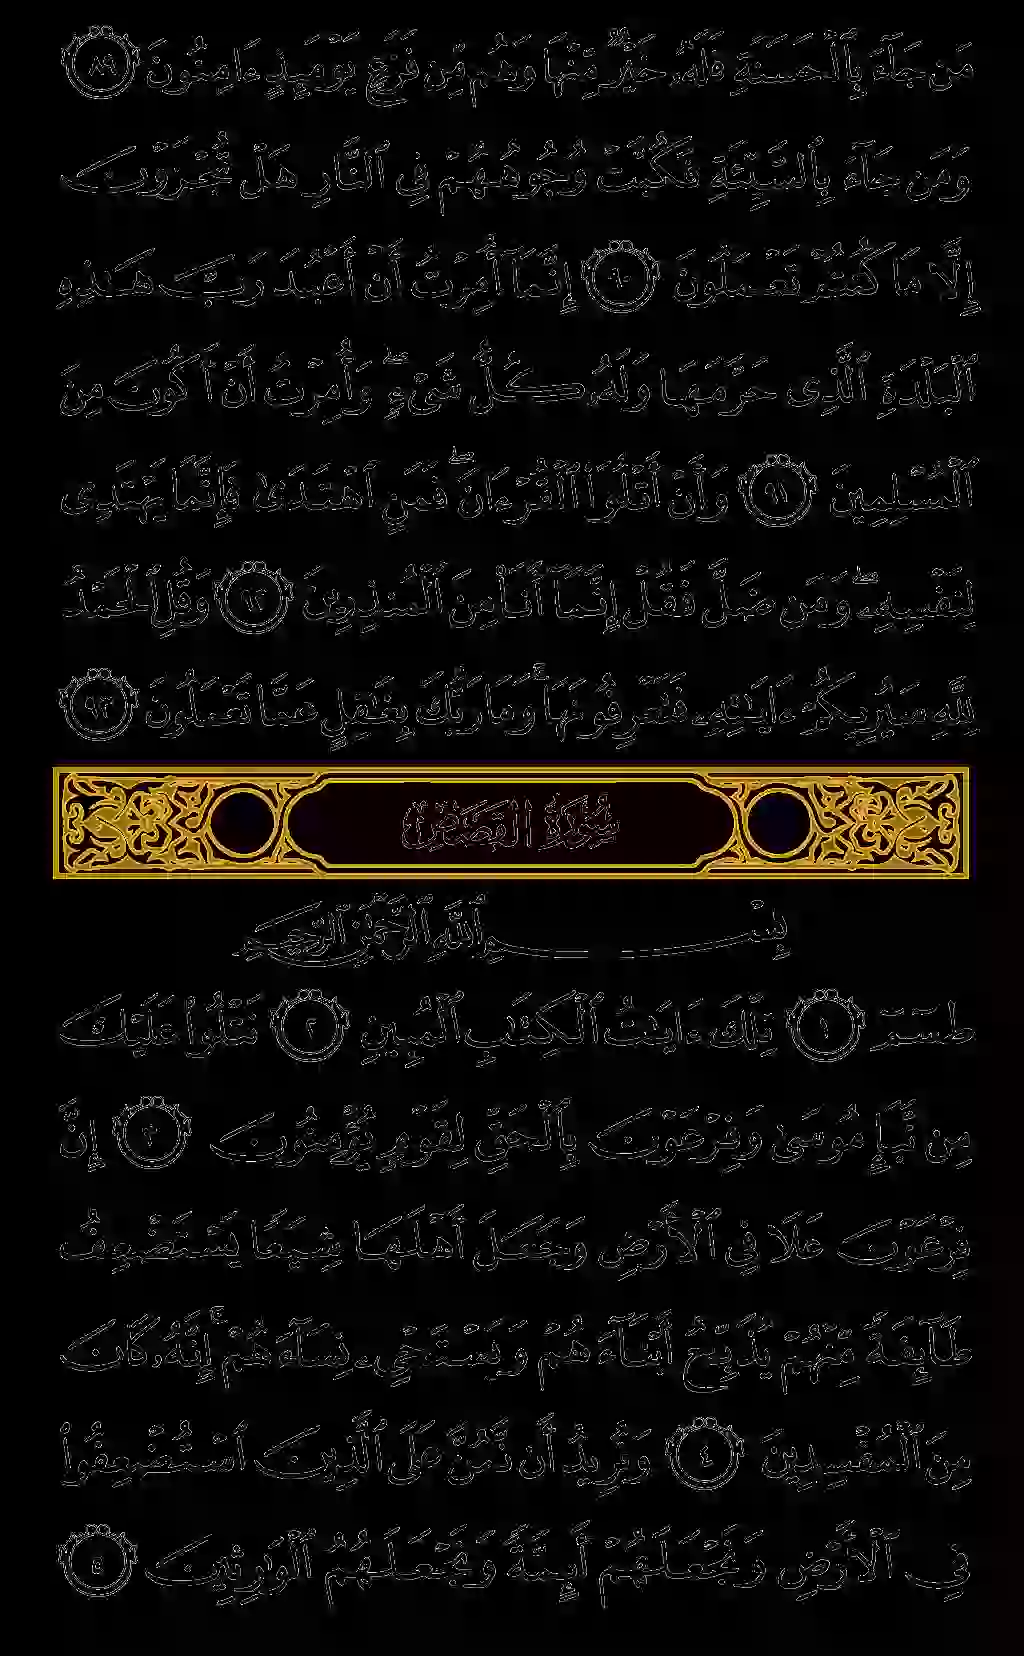 مَن جَآءَ بِٱلْحَسَنَةِ فَلَهُۥ خَيْرٌ مِّنْهَا وَهُم مِّن فَزَعٍ يَوْمَئِذٍ ءَامِنُونَ ٨٩
وَمَن جَآءَ بِٱلسَّيِّئَةِ فَكُبَّتْ وُجُوهُهُمْ فِى ٱلنَّارِ هَلْ تُجْزَوْنَ
إِلَّا مَا كُنتُمْ تَعْمَلُونَ ٩٠ إِنَّمَآ أُمِرْتُ أَنْ أَعْبُدَ رَبَّ هَٰذِهِ
ٱلْبَلْدَةِ ٱلَّذِى حَرَّمَهَا وَلَهُۥ كُلُّ شَىْءٍ ۖ وَأُمِرْتُ أَنْ أَكُونَ مِنَ
ٱلْمُسْلِمِينَ ٩١ وَأَنْ أَتْلُوَا۟ ٱلْقُرْءَانَ ۖ فَمَنِ ٱهْتَدَىٰ فَإِنَّمَا يَهْتَدِى
لِنَفْسِهِۦ ۖ وَمَن ضَلَّ فَقُلْ إِنَّمَآ أَنَا۠ مِنَ ٱلْمُنذِرِينَ ٩٢ وَقُلِ ٱلْحَمْدُ
لِلَّهِ سَيُرِيكُمْ ءَايَٰتِهِۦ فَتَعْرِفُونَهَا ۚ وَمَا رَبُّكَ بِغَٰفِلٍ عَمَّا تَعْمَلُونَ ٩٣
سُورَةُ القَصَصِ
بِسْمِ ٱللَّهِ ٱلرَّحْمَٰنِ ٱلرَّحِيمِ
طسٓمٓ ١ تِلْكَ ءَايَٰتُ ٱلْكِتَٰبِ ٱلْمُبِينِ ٢ نَتْلُوا۟ عَلَيْكَ
مِن نَّبَإِ مُوسَىٰ وَفِرْعَوْنَ بِٱلْحَقِّ لِقَوْمٍ يُؤْمِنُونَ ٣ إِنَّ
فِرْعَوْنَ عَلَا فِى ٱلْأَرْضِ وَجَعَلَ أَهْلَهَا شِيَعًا يَسْتَضْعِفُ
طَآئِفَةً مِّنْهُمْ يُذَبِّحُ أَبْنَآءَهُمْ وَيَسْتَحْىِۦ نِسَآءَهُمْ ۚ إِنَّهُۥ كَانَ
مِنَ ٱلْمُفْسِدِينَ ٤ وَنُرِيدُ أَن نَّمُنَّ عَلَى ٱلَّذِينَ ٱسْتُضْعِفُوا۟
فِى ٱلْأَرْضِ وَنَجْعَلَهُمْ أَئِمَّةً وَنَجْعَلَهُمُ ٱلْوَٰرِثِينَ ٥